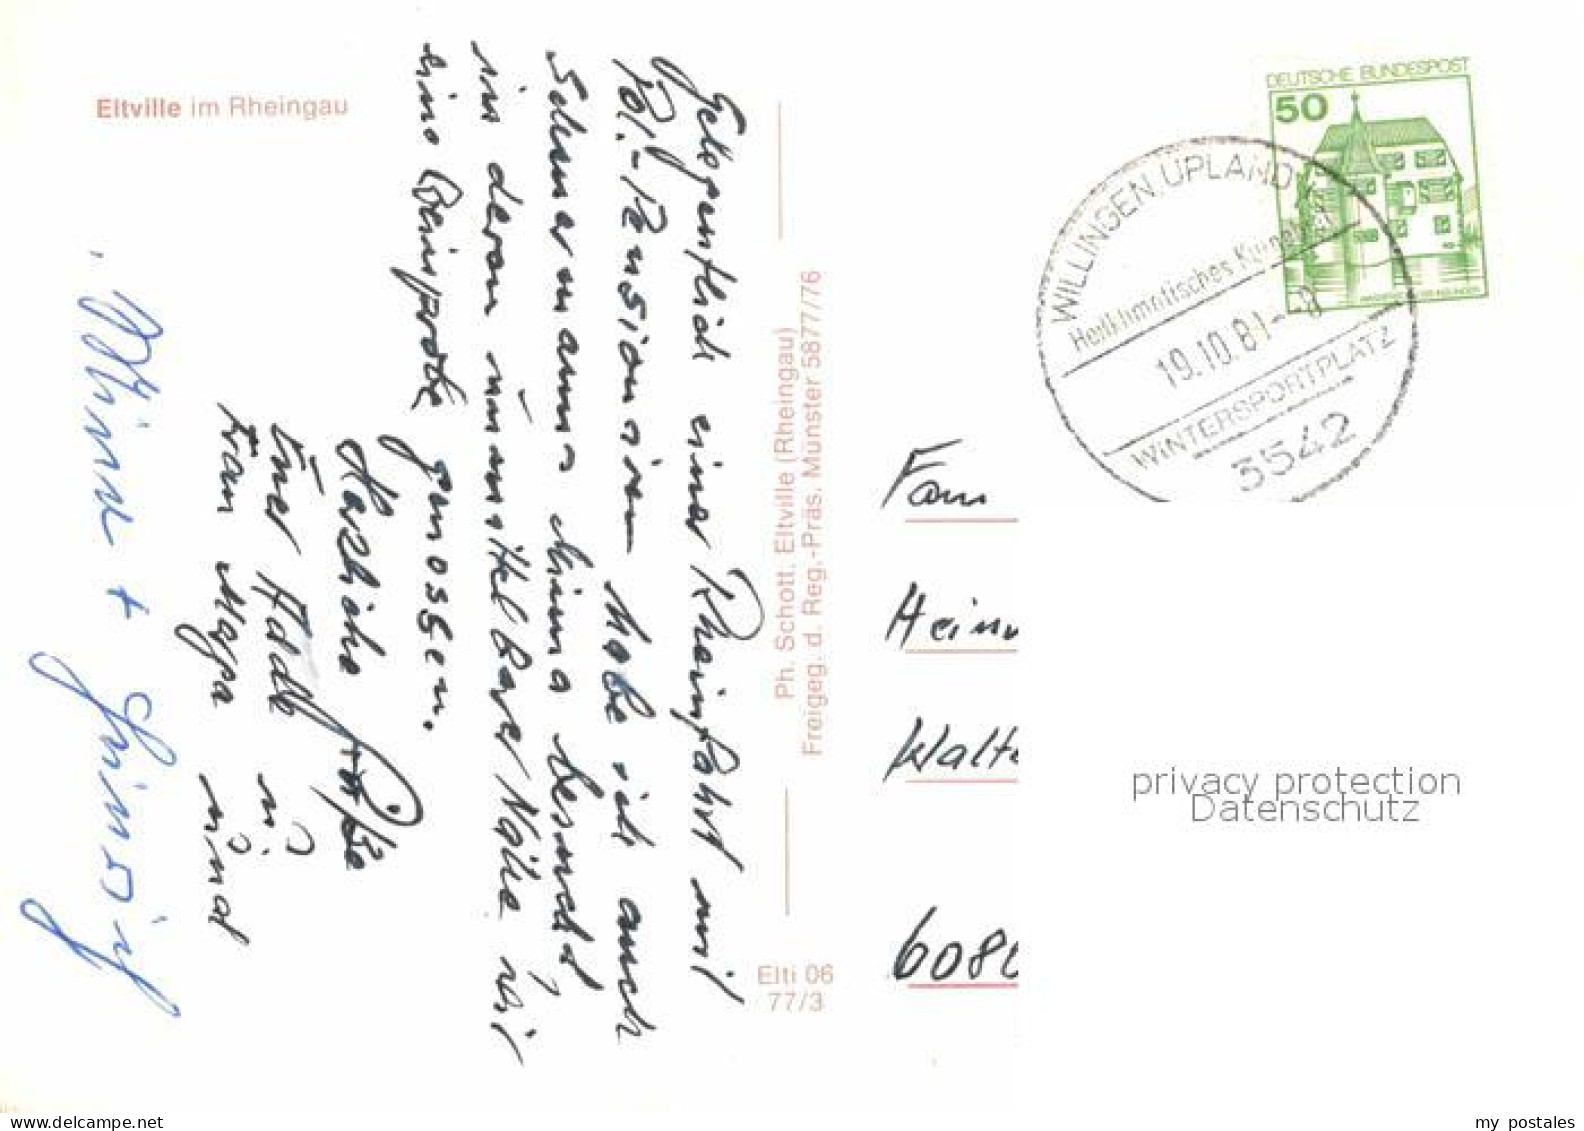 Eltville im Rheingau
Gelegentlich einer Rheinfahrt mit
Pol.-Pensionären habe ich auch
Schuermanns Minna besucht,
in deren unmittelbarer Nähe wir
eine Weinprobe genossen.
Herzliche Grüße
Euer Adolf u.
Frau Magra und
Minna +
Ph. Schott, Eltville (Rheingau)
Freigeg. d. Reg.-Präs. Münster 5877/76
Elti 06
77/3
DEUTSCHE BUNDESPOST
50
WILLINGEN, UPLAND
Heilklimatisches Kurgebiet
19.10.81-
WINTERSPORTPLATZ
3542
Fam
Hein
Walte
608
privacy protection
Datenschutz
my postales